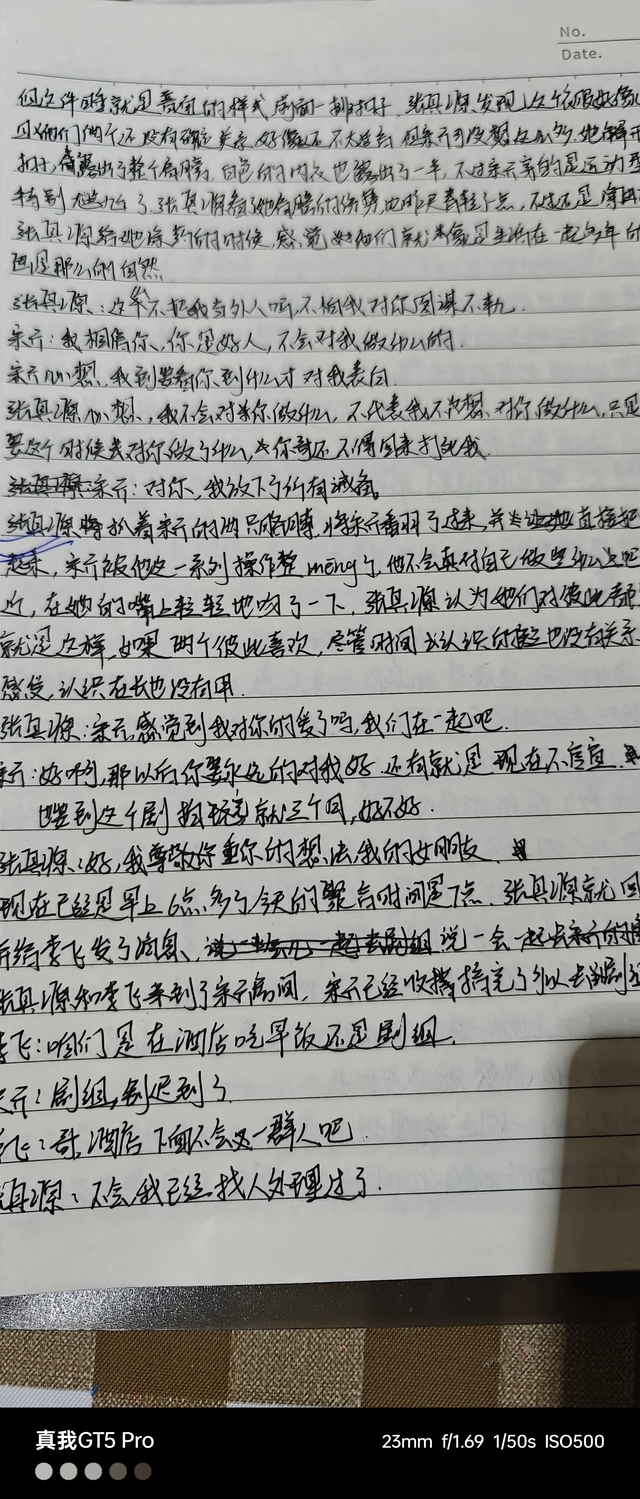 No.
Date.
但这件睡衣就是普通的样式前面一排扣子，张真源发现这个衣服好像
他们两个还没有确定关系好像还不大合适但宋亓可没想这么多，她解开
扣子，露出了整个肩膀，白色的内衣也露出了一半，不过宋亓穿的是运动型
特别尴尬了，张真源看她肩膀的伤势，比昨天青轻了点，不过还是
张真源给她涂药的时候，感觉他们就像是生活在一起多年的
画是那么的自然
张真源：这么不把我当外人啊，不怕我对你图谋不轨．
宋亓：我相信你，你是好人，不会对我做什么的．
宋亓心想，我到要看你到什么才对我表白
张真源心想，我不会对你做什么，不代表我不想对你做什么，只是
要这个时候对你做了什么，你哥还不得回来打死我．
宋亓：对你，我放下了所有戒备。
张真源扒着宋亓的两只胳膊，将宋亓翻了过来，并直接把
起来，宋亓被他这一系列操作整meng了，他不会真对自己做些什么吧
近，在她的嘴上轻轻地吻了一下，张真源认为她们对彼此
就是这样，如果两个彼此喜欢，尽管时间认识的短也没有关系
感觉，认识在长也没有用．
张真源：宋亓感觉到我对你的爱了吗，我们在一起吧．
宋亓：好啊，那以后你要永远的对我好，还有就是现在不官宣．
嘿到这个剧拍完就三个月，好不好．
张真源：好，我尊敬你重你的想法，我的女朋友．
现在已经是早上6点多了今天的聚合时间是7点，张真源就回
给李飞发了消息、说一会一起去宋亓的
张真源和李飞来到了宋亓房间，宋亓已经收拾搞完了可以去剧组
李飞：咱们是在酒店吃早饭还是剧组．
宋亓：剧组，别迟到了
李飞：哥，酒店下面不会又一群人吧．
张真源：不会，我已经找人处理过了．
真我GT5 Pro
23mm f/1.69 1/50s ISO500